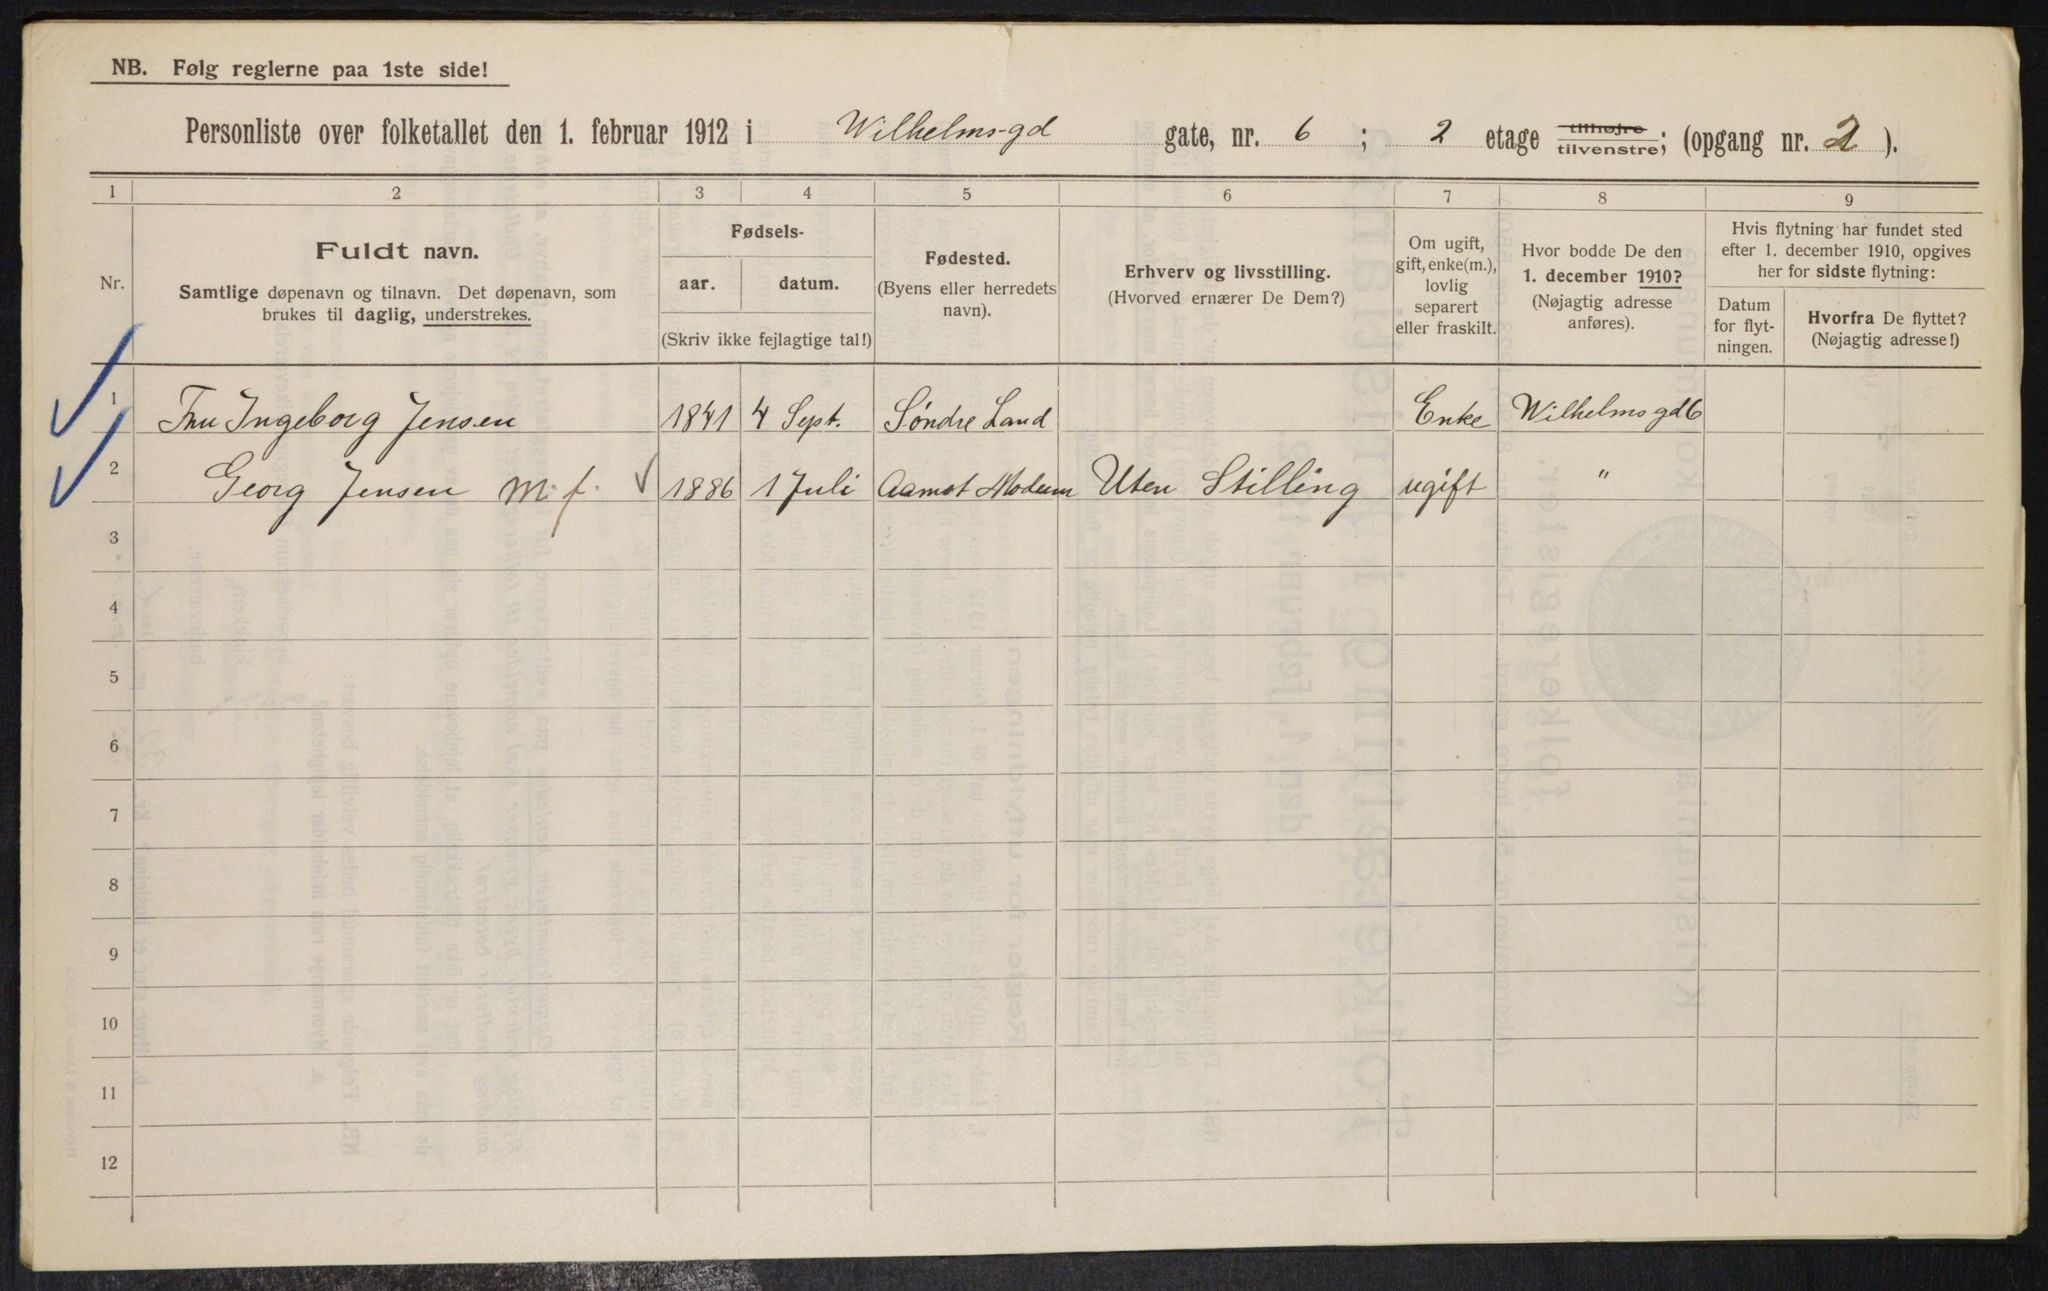 NB. Følg reglerne paa 1ste side!
Personliste over folketallet den 1. februar 1912 i Wilhelms-gd gate, nr. 6 ; 2 etage tilhøjre tilvenstre; (opgang nr. 2 ).
1 2 3 4 5 6 7 8 9
Nr.
Fuldt navn.
Samtlige døpenavn og tilnavn. Det døpenavn, som
brukes til daglig, understrekes.
Fødsels-
aar. datum.
(Skriv ikke fejlagtige tal!)
Fødested.
(Byens eller herredets
navn).
Erhverv og livsstilling.
(Hvorved ernærer De Dem?)
Om ugift,
gift, enke(m.),
lovlig
separert
eller fraskilt.
Hvor bodde De den
1. december 1910?
(Nøjagtig adresse
anføres).
Hvis flytning har fundet sted
efter 1. december 1910, opgives
her for sidste flytning:
Datum
for flyt-
ningen.
Hvorfra De flyttet?
(Nøjagtig adresse!)
1 Fru Ingeborg Jensen 1841 4 Sept. Søndre Land Enke Wilhelms gd 6
2 Georg Jensen m. f. 1886 1 Juli Aamot Modum Uten Stilling ugift "
3
4
5
6
7
8
9
10
11
12